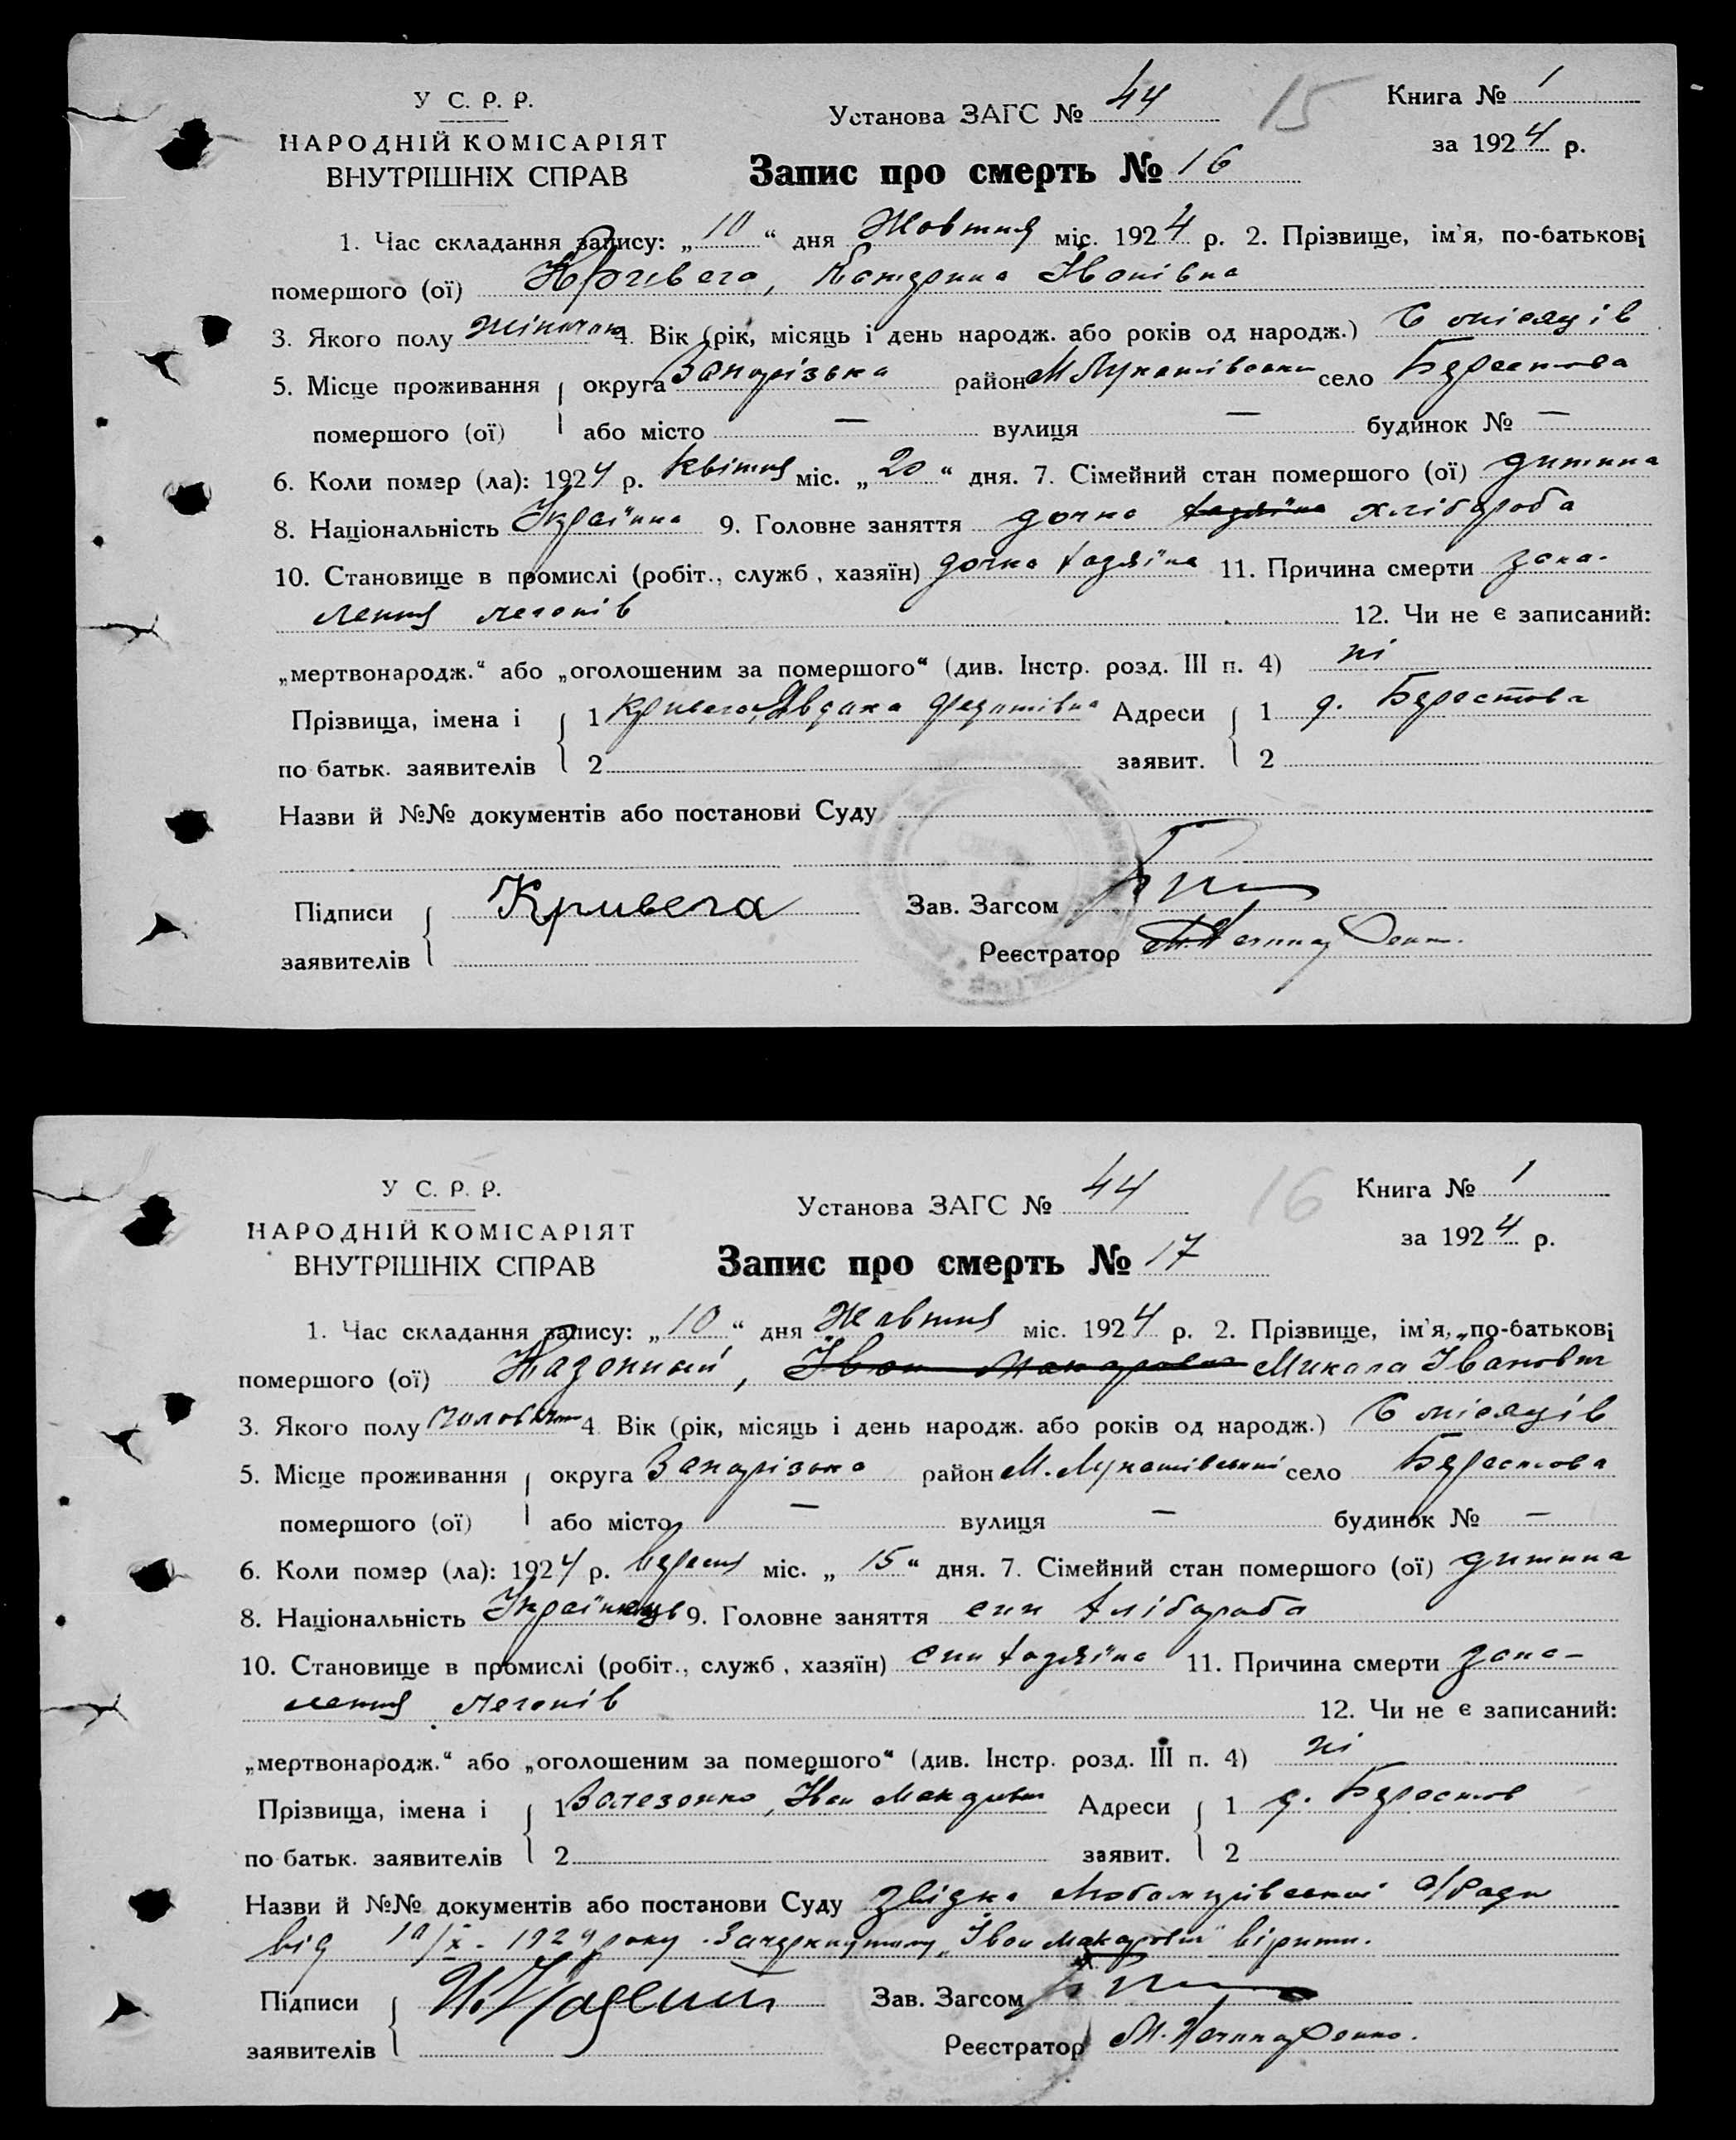 У С. Р. Р.
НАРОДНІЙ КОМІСАРІЯТ
ВНУТРІШНІХ СПРАВ
Установа ЗАГС № 44
15
Книга № 1
за 1924 р.
Запис про смерть № 16
1. Час складання запису: „10“ дня Жовтня міс. 1924 р. 2. Прізвище, ім'я, по-батькові
помершого (ої) Кривега, Катерина Іванівна
3. Якого полу жіночого 4. Вік (рік, місяць і день народж. або років од народж.) 6 місяців
5. Місце проживання округа Запорізька район М Лукашівський село Берестова
помершого (ої) або місто — вулиця — будинок № —
6. Коли помер (ла): 1924 р. Квітня міс. „20“ дня. 7. Сімейний стан помершого (ої) дитина
8. Національність Українка 9. Головне заняття дочка хазяїна хлібороба
10. Становище в промислі (робіт., служб, хазяїн) дочка хазяїна 11. Причина смерти запа-
лення легенів 12. Чи не є записаний:
„мертвонародж.“ або „оголошеним за помершого“ (див. Інстр. розд. III п. 4) ні
Прізвища, імена і 1 Кривега, Явдоха Федотівна Адреси 1 д. Берестова
по батьк. заявителів 2 заявит. 2
Назви й №№ документів або постанови Суду
Підписи Кривега Зав. Загсом
заявителів Реєстратор
У С. Р. Р.
НАРОДНІЙ КОМІСАРІЯТ
ВНУТРІШНІХ СПРАВ
Установа ЗАГС № 44
16
Книга № 1
за 1924 р.
Запис про смерть № 17
1. Час складання запису: „10“ дня Жовтня міс. 1924 р. 2. Прізвище, ім'я, по-батькові
помершого (ої) Іван Макарович Микола Іванович
3. Якого полу чоловічого 4 Вік (рік, місяць і день народж. або років од народж.) 6 місяців
5. Місце проживання округа Запорізька район М. Лукашівський село Берестова
помершого (ої) або місто — вулиця — будинок № —
6. Коли помер (ла): 1924 р. Вересня міс. „15“ дня. 7. Сімейний стан помершого (ої) дитина
8. Національність Українець 9. Головне заняття син хлібороба
10. Становище в промислі (робіт., служб, хазяїн) син хазяїна 11. Причина смерти запа-
лення легенів 12. Чи не є записаний:
„мертвонародж.“ або „оголошеним за помершого“ (див. Інстр. розд. III п. 4) ні
Прізвища, імена і 1 Іван Макарович Адреси 1 д. Берестов
по батьк. заявителів 2 заявит. 2
Назви й №№ документів або постанови Суду звідка с/Ради
від 10/X - 1924 року. Зачеркнутому „Іван Макарович“ вірити.
Підписи Зав. Загсом
заявителів Реєстратор М.